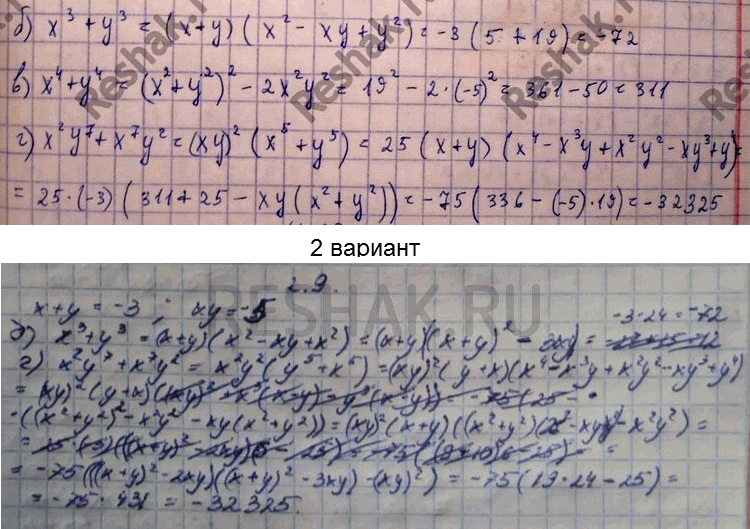 б) x³ + y³ = (x+y)(x² - xy + y²) = -3(5 + 19) = -72
в) x⁴+y⁴ = (x²+y²)² - 2x²y² = 19² - 2·(-5)² = 361 - 50 = 311
г) x²y⁷ + x⁷y² = (xy)² (x⁵ + y⁵) = 25 (x+y) (x⁴ - x³y + x²y² - xy³ + y⁴) =
= 25·(-3)(311 + 25 - xy(x² + y²)) = -75(336 - (-5)·19) = -32325
2 вариант
с.9.
x+y = -3 ; xy = -5
-3·24 = -72
б) x³+y³ = (x+y)(x² - xy + x²) = (x+y)((x+y)² - 3xy) =
г) x²y⁷ + x⁷y² = x²y²(y⁵ + x⁵) = (xy)²(y+x)(x⁴ - x³y + x²y² - xy³ + y⁴)
= (xy)²(y+x)
·((x²+y²)² - x²y² - xy(x²+y²)) = (xy)²(x+y)((x²+y²)(x² - xy + y²) - x²y²) =
= -75(((x+y)² - 2xy)((x+y)² - 3xy) - (xy)²) = -75(19·24 - 25) =
= -75·431 = -32325.
RESHAK.RU
Reshak.ru
Reshak.ru
Reshak.ru